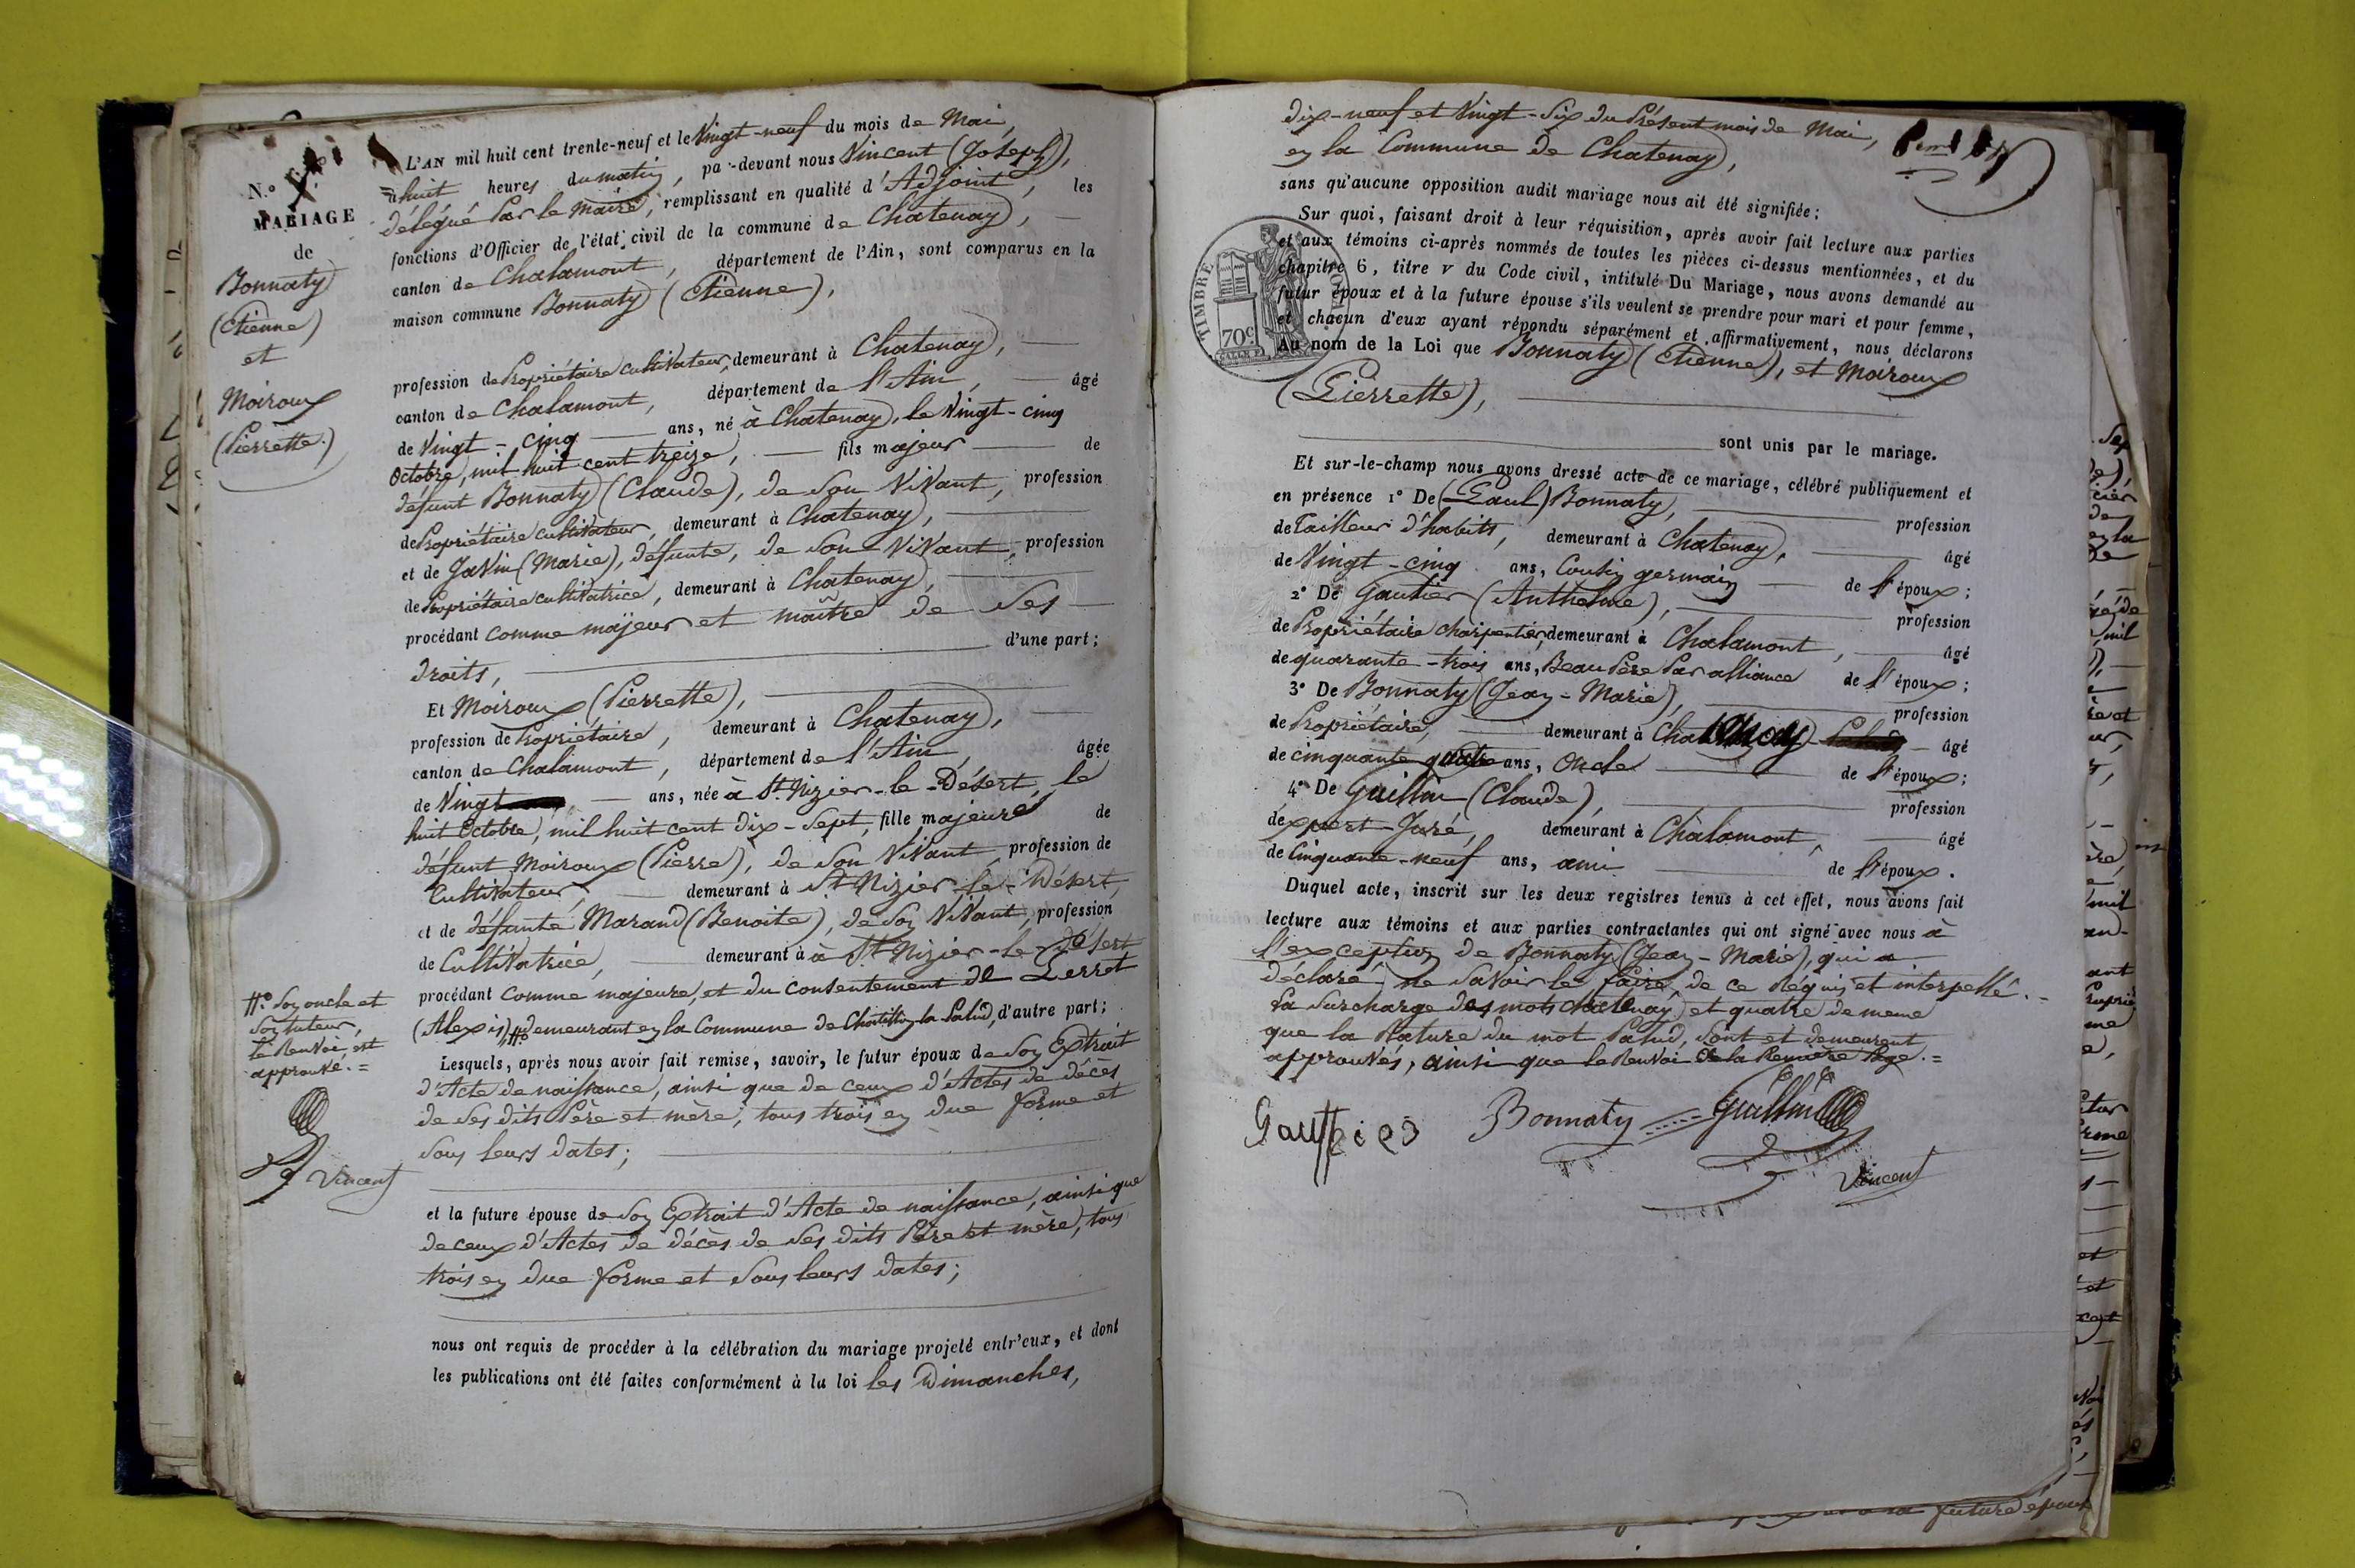 N.°
MARIAGE
de
Bonnaty
(Etienne)
et
Moiroux
(Pierrette.)
L'AN mil huit cent trente-neuf et le Vingt-neuf du mois de Mai,
à huit heures du matin, par-devant nous Vincent (Joseph),
délégué par le Maire, remplissant en qualité d'Adjoint, les
fonctions d'Officier de l'état civil de la commune de Chatenay,
canton de Chalamont, département de l'Ain, sont comparus en la
maison commune Bonnaty (Etienne),
profession de Propriétaire cultivateur, demeurant à Chatenay,
canton de Chalamont, département de l'Ain, âgé
de Vingt-cinq ans, né à Chatenay, le Vingt-cinq
Octobre, mil huit cent treize, fils majeur de
défunt Bonnaty (Claude), de son Vivant, profession
de Propriétaire cultivateur, demeurant à Chatenay,
et de Javin (Marie), défunte, de son Vivant, profession
de Propriétaire cultivatrice, demeurant à Chatenay,
procédant comme majeur et maître de ses
droits, d'une part;
Et Moiroux (Pierrette),
profession de Propriétaire, demeurant à Chatenay,
canton de Chalamont, département de l'Ain, âgée
de Vingt ans, née à St. Nizier-le-Désert, le
huit Octobre, mil huit cent dix-sept, fille majeure de
défunt Moiroux (Pierre), de son Vivant, profession de
Cultivateur, demeurant à St Nizier-le-Désert,
et de défunte Marand (Benoite), de son Vivant, profession
de Cultivatrice, demeurant à à St Nizier-le-Désert
procédant comme majeure, et du consentement de Perrot
(Alexis), #° demeurant en la Commune de Chatillon la Palud, d'autre part;
#° son oncle et
son tuteur,
le Renvoi est
approuvé. =
Vincent
Lesquels, après nous avoir fait remise, savoir, le futur époux de son Extrait
d'Acte de naissance, ainsi que de ceux d'Actes de décès
de ses dits Père et mère, tous trois en due forme et
sous leurs dates;
et la future épouse de son Extrait d'Acte de naissance, ainsi que
de ceux d'Actes de décès de ses dits Père et mère, tous
trois en due forme et sous leurs dates;
nous ont requis de procéder à la célébration du mariage projeté entr'eux, et dont
les publications ont été faites conformément à la loi les Dimanches,
dix-neuf et Vingt-six du Présent mois de Mai,
en la Commune de Chatenay,
sans qu'aucune opposition audit mariage nous ait été signifiée;
Sur quoi, faisant droit à leur réquisition, après avoir fait lecture aux parties
et aux témoins ci-après nommés de toutes les pièces ci-dessus mentionnées, et du
chapitre 6, titre V du Code civil, intitulé Du Mariage, nous avons demandé au
futur époux et à la future épouse s'ils veulent se prendre pour mari et pour femme,
et chacun d'eux ayant répondu séparément et affirmativement, nous déclarons
Au nom de la Loi que Bonnaty (Etienne), et Moiroux
(Pierrette),
sont unis par le mariage.
TIMBRE
70c
Et sur-le-champ nous avons dressé acte de ce mariage, célébré publiquement et
en présence 1° De (Paul) Bonnaty, profession
de Tailleur d'habits, demeurant à Chatenay, âgé
de Vingt-cinq ans, Cousin germain de l'époux;
2° De Gautier (Anthelme), profession
de Propriétaire charpentier, demeurant à Chalamont, âgé
de quarante-trois ans, Beau Père Par alliance de l'époux;
3° De Bonnaty (Jean-Marie), profession
de Propriétaire, demeurant à Chatenay âgé
de cinquante quatre ans, Oncle de l'époux;
4° De Guillin (Claude), profession
d'expert-Juré, demeurant à Chalamont, âgé
de Cinquante-neuf ans, ami de l'époux.
Duquel acte, inscrit sur les deux registres tenus à cet effet, nous avons fait
lecture aux témoins et aux parties contractantes qui ont signé avec nous à
l'exception de Bonnaty (Jean-Marie), qui a
déclaré ne savoir le faire, de ce Réquis et interpellé. =
La surcharge des mots chatenay et quatre de meme
que la Rature du mot Palud, sont et demeurent
approuvés, ainsi que le Renvoi de la Première Page. =
Gauthier Bonnaty Guillin
Vincent
future épous